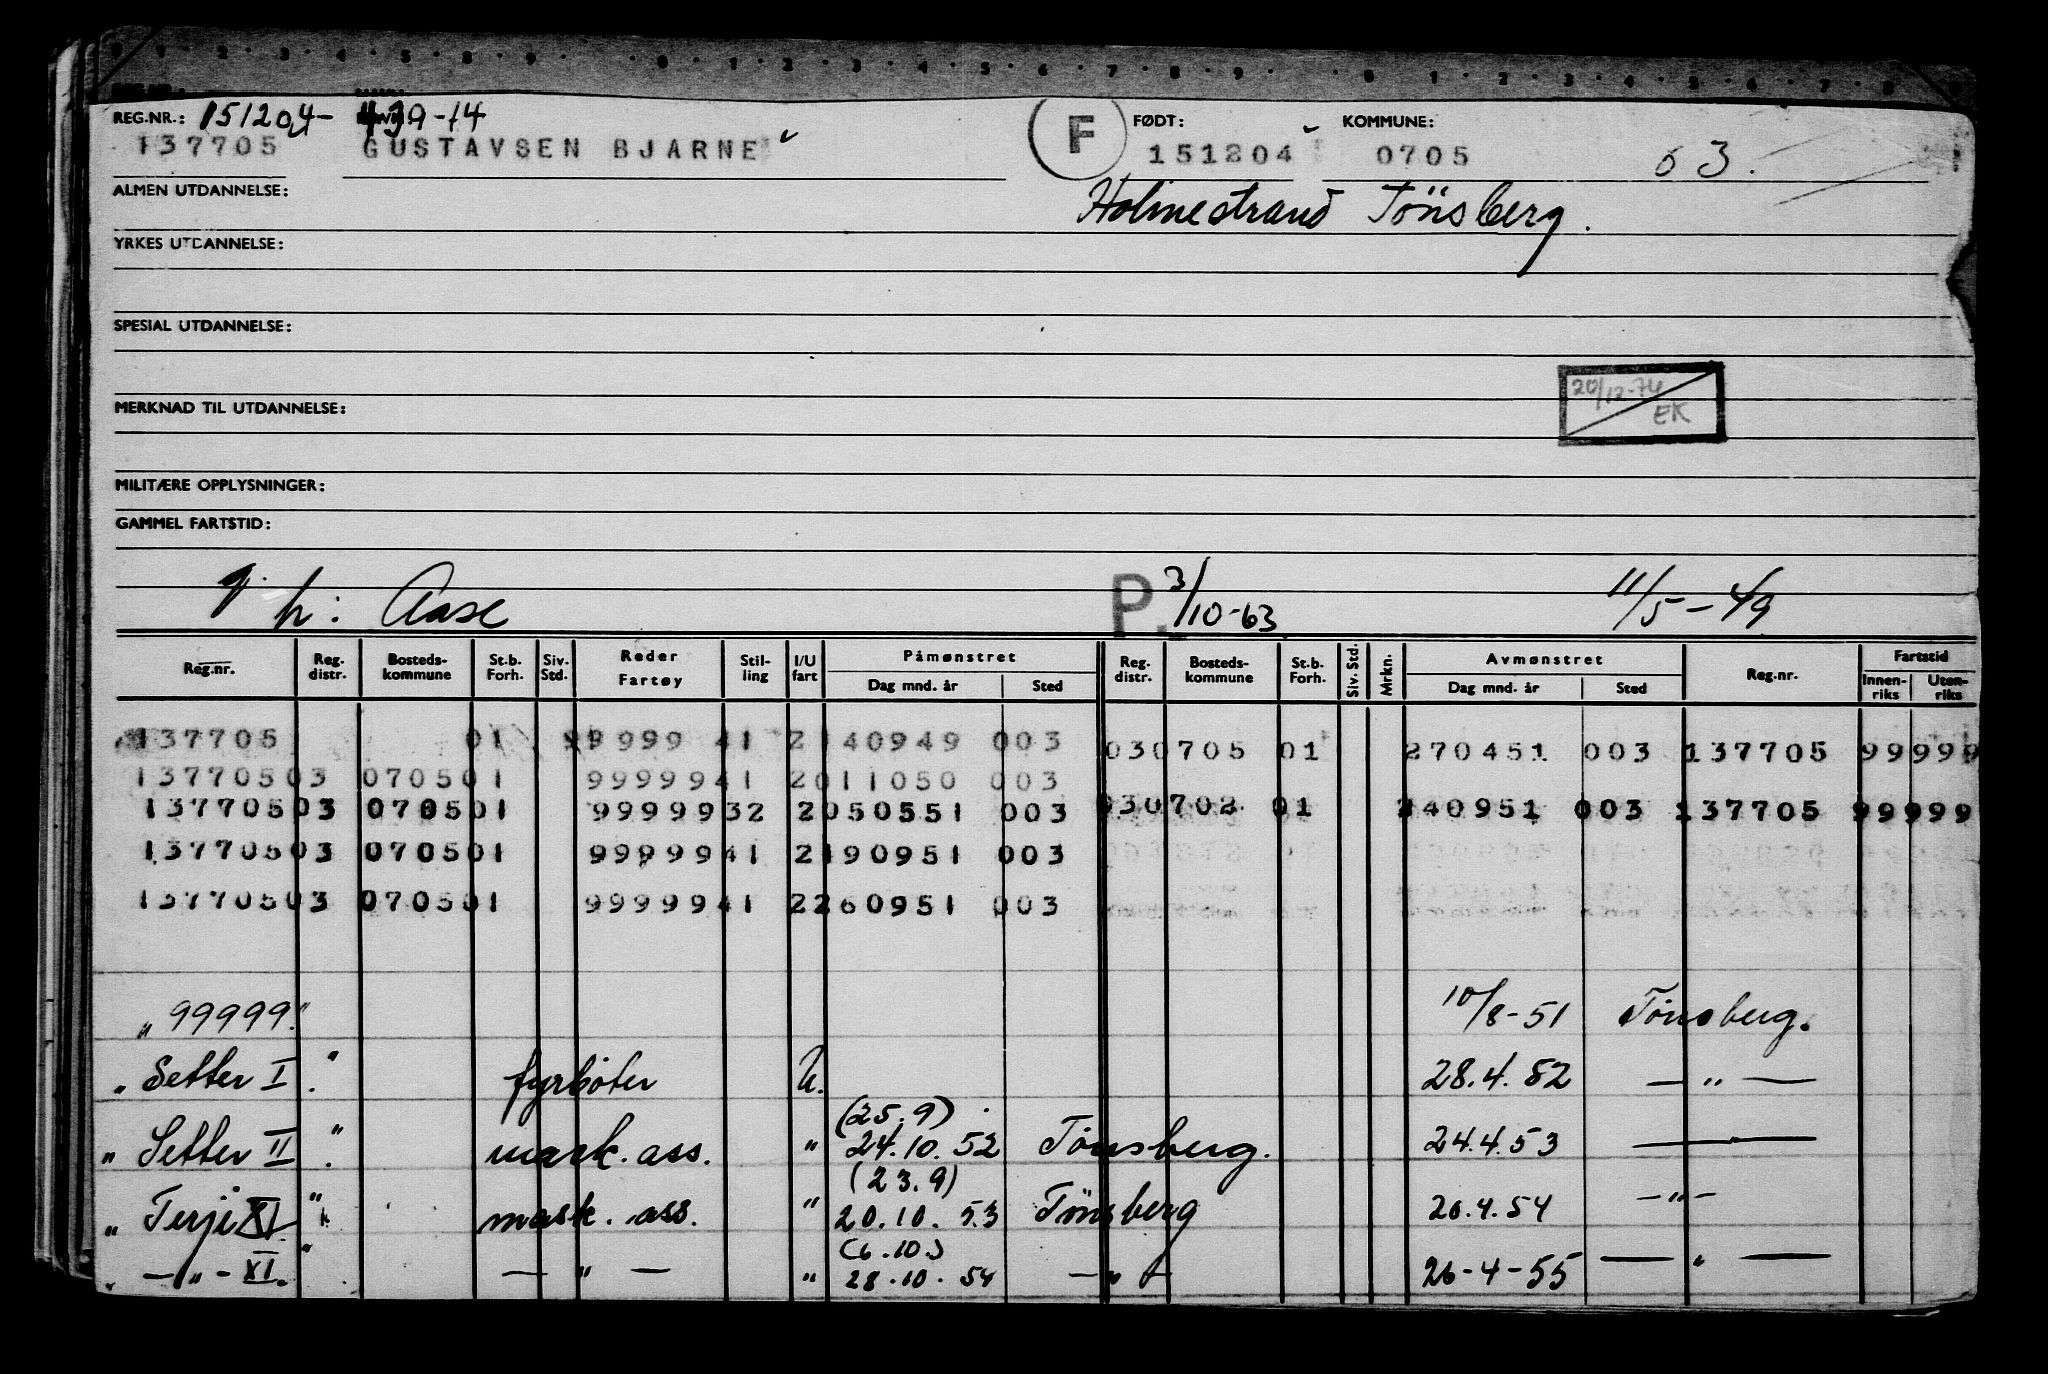 REG.NR.: 151204- 439-14 F FØDT: KOMMUNE:
137705 GUSTAVSEN BJARNE 151204 0705 63.
ALMEN UTDANNELSE: Holmestrand Tönsberg.
YRKES UTDANNELSE:
SPESIAL UTDANNELSE:
20/12-74
MERKNAD TIL UTDANNELSE: EK
MILITÆRE OPPLYSNINGER:
GAMMEL FARTSTID:
h: Aase P. 3/10-63 11/5-49
Reg.nr. Reg. distr. Bosteds-kommune St.b. Forh. Siv. Std. Reder Fartøy Stil-ling I/U fart Påmønstret Dag mnd. år Sted Reg. distr. Bosteds-kommune St.b. Forh. Siv. Std. Mrkn. Avmønstret Dag mnd. år Sted Reg.nr. Fartstid Innen-riks Uten-riks
137705 01 99999 41 2140949 003 030705 01 270451 003 137705 99999
13770503 070501 9999941 2011050 003
13770503 070501 9999932 2050551 003 030702 01 240951 003 137705 99999
13770503 070501 9999941 2190951 003
13770503 070501 9999941 2260951 003
„ 99999." 10/8-51 Tönsberg.
„ Setter I " fyrböter U. 28.4.52 — " —
(25.9)
„ Setter II " mask. ass. " 24.10.52 Tönsberg. 24.4.53 ———
(23.9)
„ Terje XI " mask. ass. " 20.10.53 Tönsberg 20.4.54 — " —
(6.10.)
„ — " — XI. " — " — " 28.10.54 — " — 26-4-55 — " —